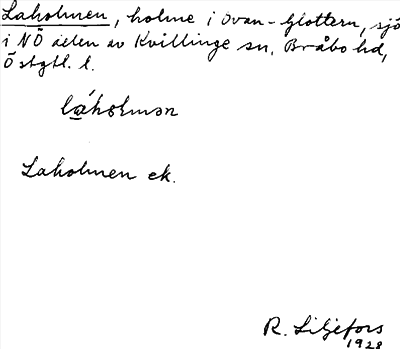 Laholmen, holme i Övan-Glottern, sjö
i NÖ delen av Kvillinge sn, Bråbo hd,
Östgtl. l.
láholmən
Laholmen ek.
R. Liljefors
1928